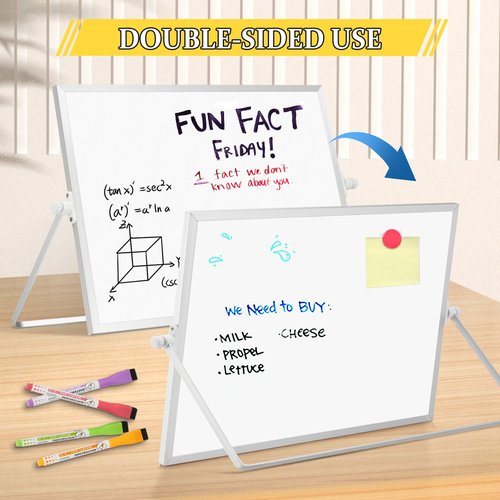 DOUBLE-SIDED USE
FUN FACT
FRIDAY!
1 fact we don't
know about you
(tan x)' = sec²x
(aˣ)' = aˣ ln a
Z
Y
X
(csc
We Need to BUY:
• MILK
• CHEESE
• PROPEL
• LETTUCE